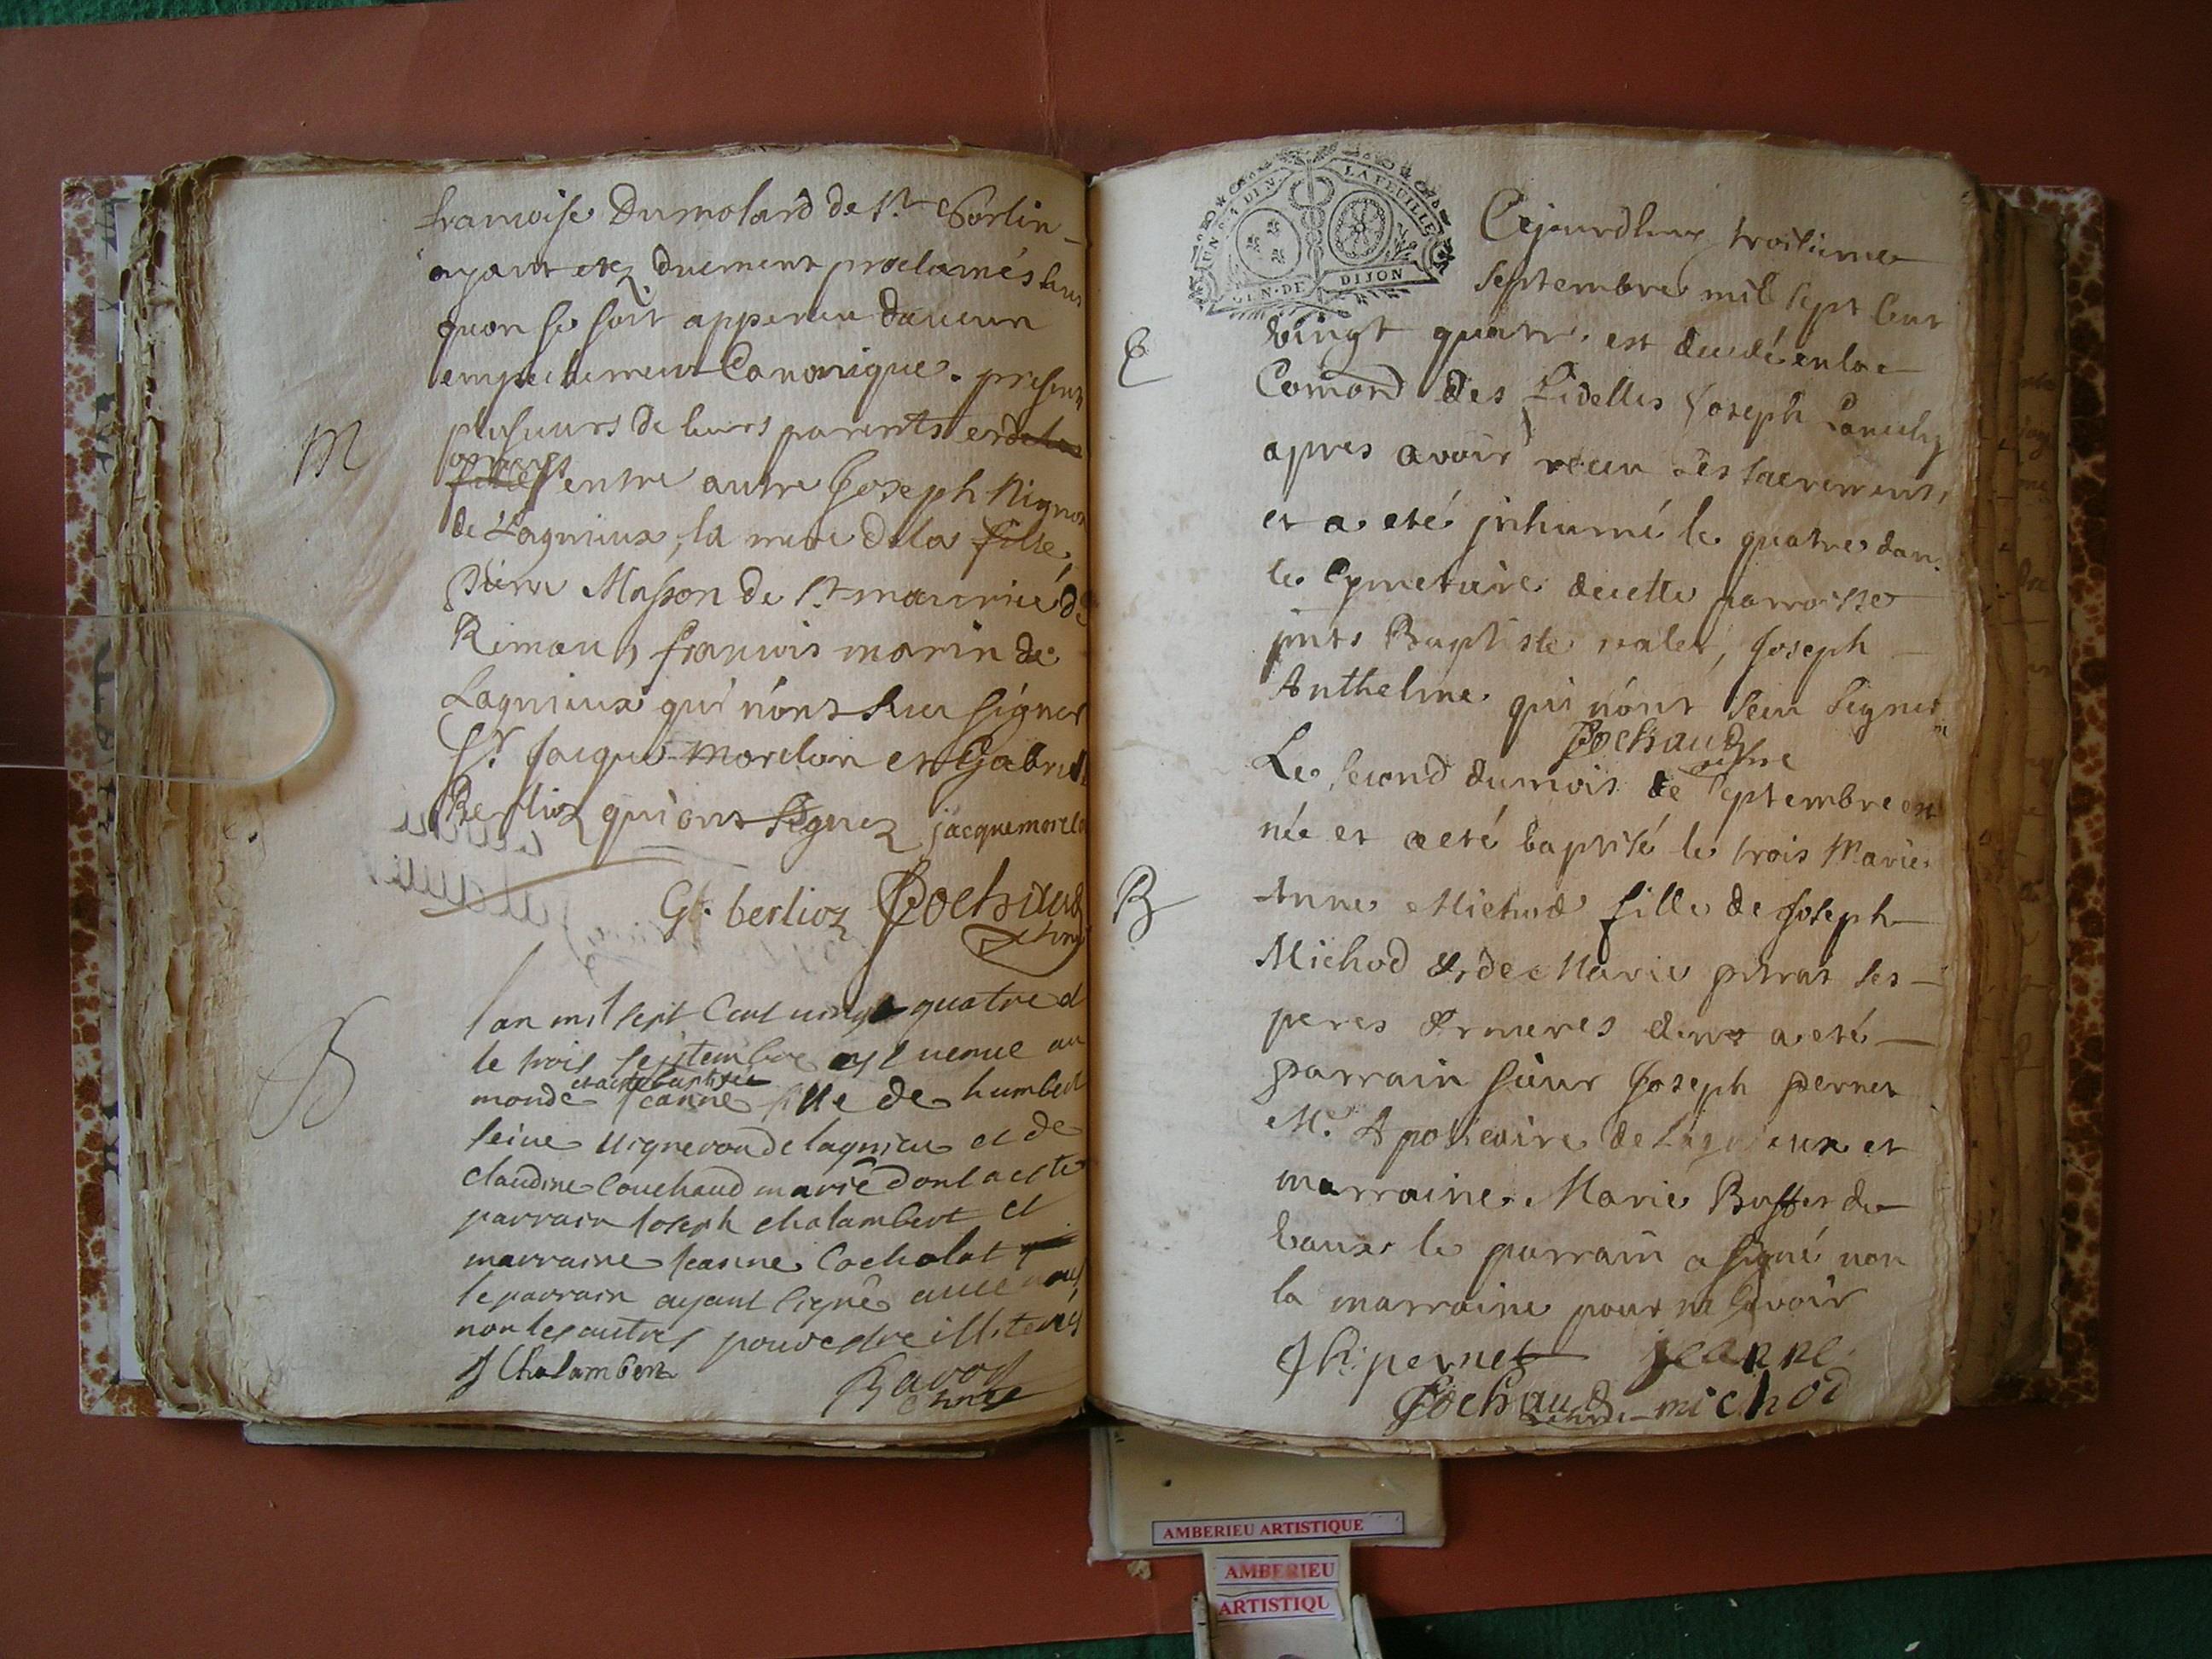 francoise Dumolard de St Sorlin
ayant etez duement proclamés sans
quon se soit apperceu daucun
empechement Canonique. present
plusieurs de leurs parents et de la
entre autre Joseph
M
de Lagnieux, la mere de la fille,
Masson de St maurice de
Remau, francois marin de
Lagnieux qui nónt sceu signer
Sr. Jacque morelon et Gabriel
Berlioz qui ont signez jacque morelon
G. berlioz Cochaud
B
lan mil sept Cent vingt quatre et
le trois septembre est venue au
et a este baptisée
monde Jeanne fille de humbert
vigneron de lagnieu et de
claudine Couchaud marié dont a este
parrain Joseph chalambert et
marraine Jeanne Cocholat
le parrain ayant signé avec nous
non les autres pour estre illiterés
J Chalambert
UN S. 4 DEN. LA FEUILLE
GEN. DE DIJON
Cejourdhuy troisieme
septembre mil sept Cent
E
vingt quatre est decedé en la
Comōnd des Fidelles Joseph
apres avoir receu ses sacrements
et a eté jnhumé le quatre dans
le Cymetaire de cette parroisse
pnts Baptiste valet, Joseph
Anthelme qui nónt sceu signer
Cochaud
Le second du mois de septembre est
née et a eté baptisé le trois Marie
B
Anne Michod fille de Joseph
Michod et de Marie ses
peres et meres dont a eté
parrain sieur Joseph pernet
M. Apoticaire de Lagnieux et
marraine Marie Buffet de
Vaux le parrain a signé non
la marraine pour ne scavoir
Jh: pernet jeanne
Cochaud michod
AMBERIEU ARTISTIQUE
AMBERIEU
ARTISTIQU